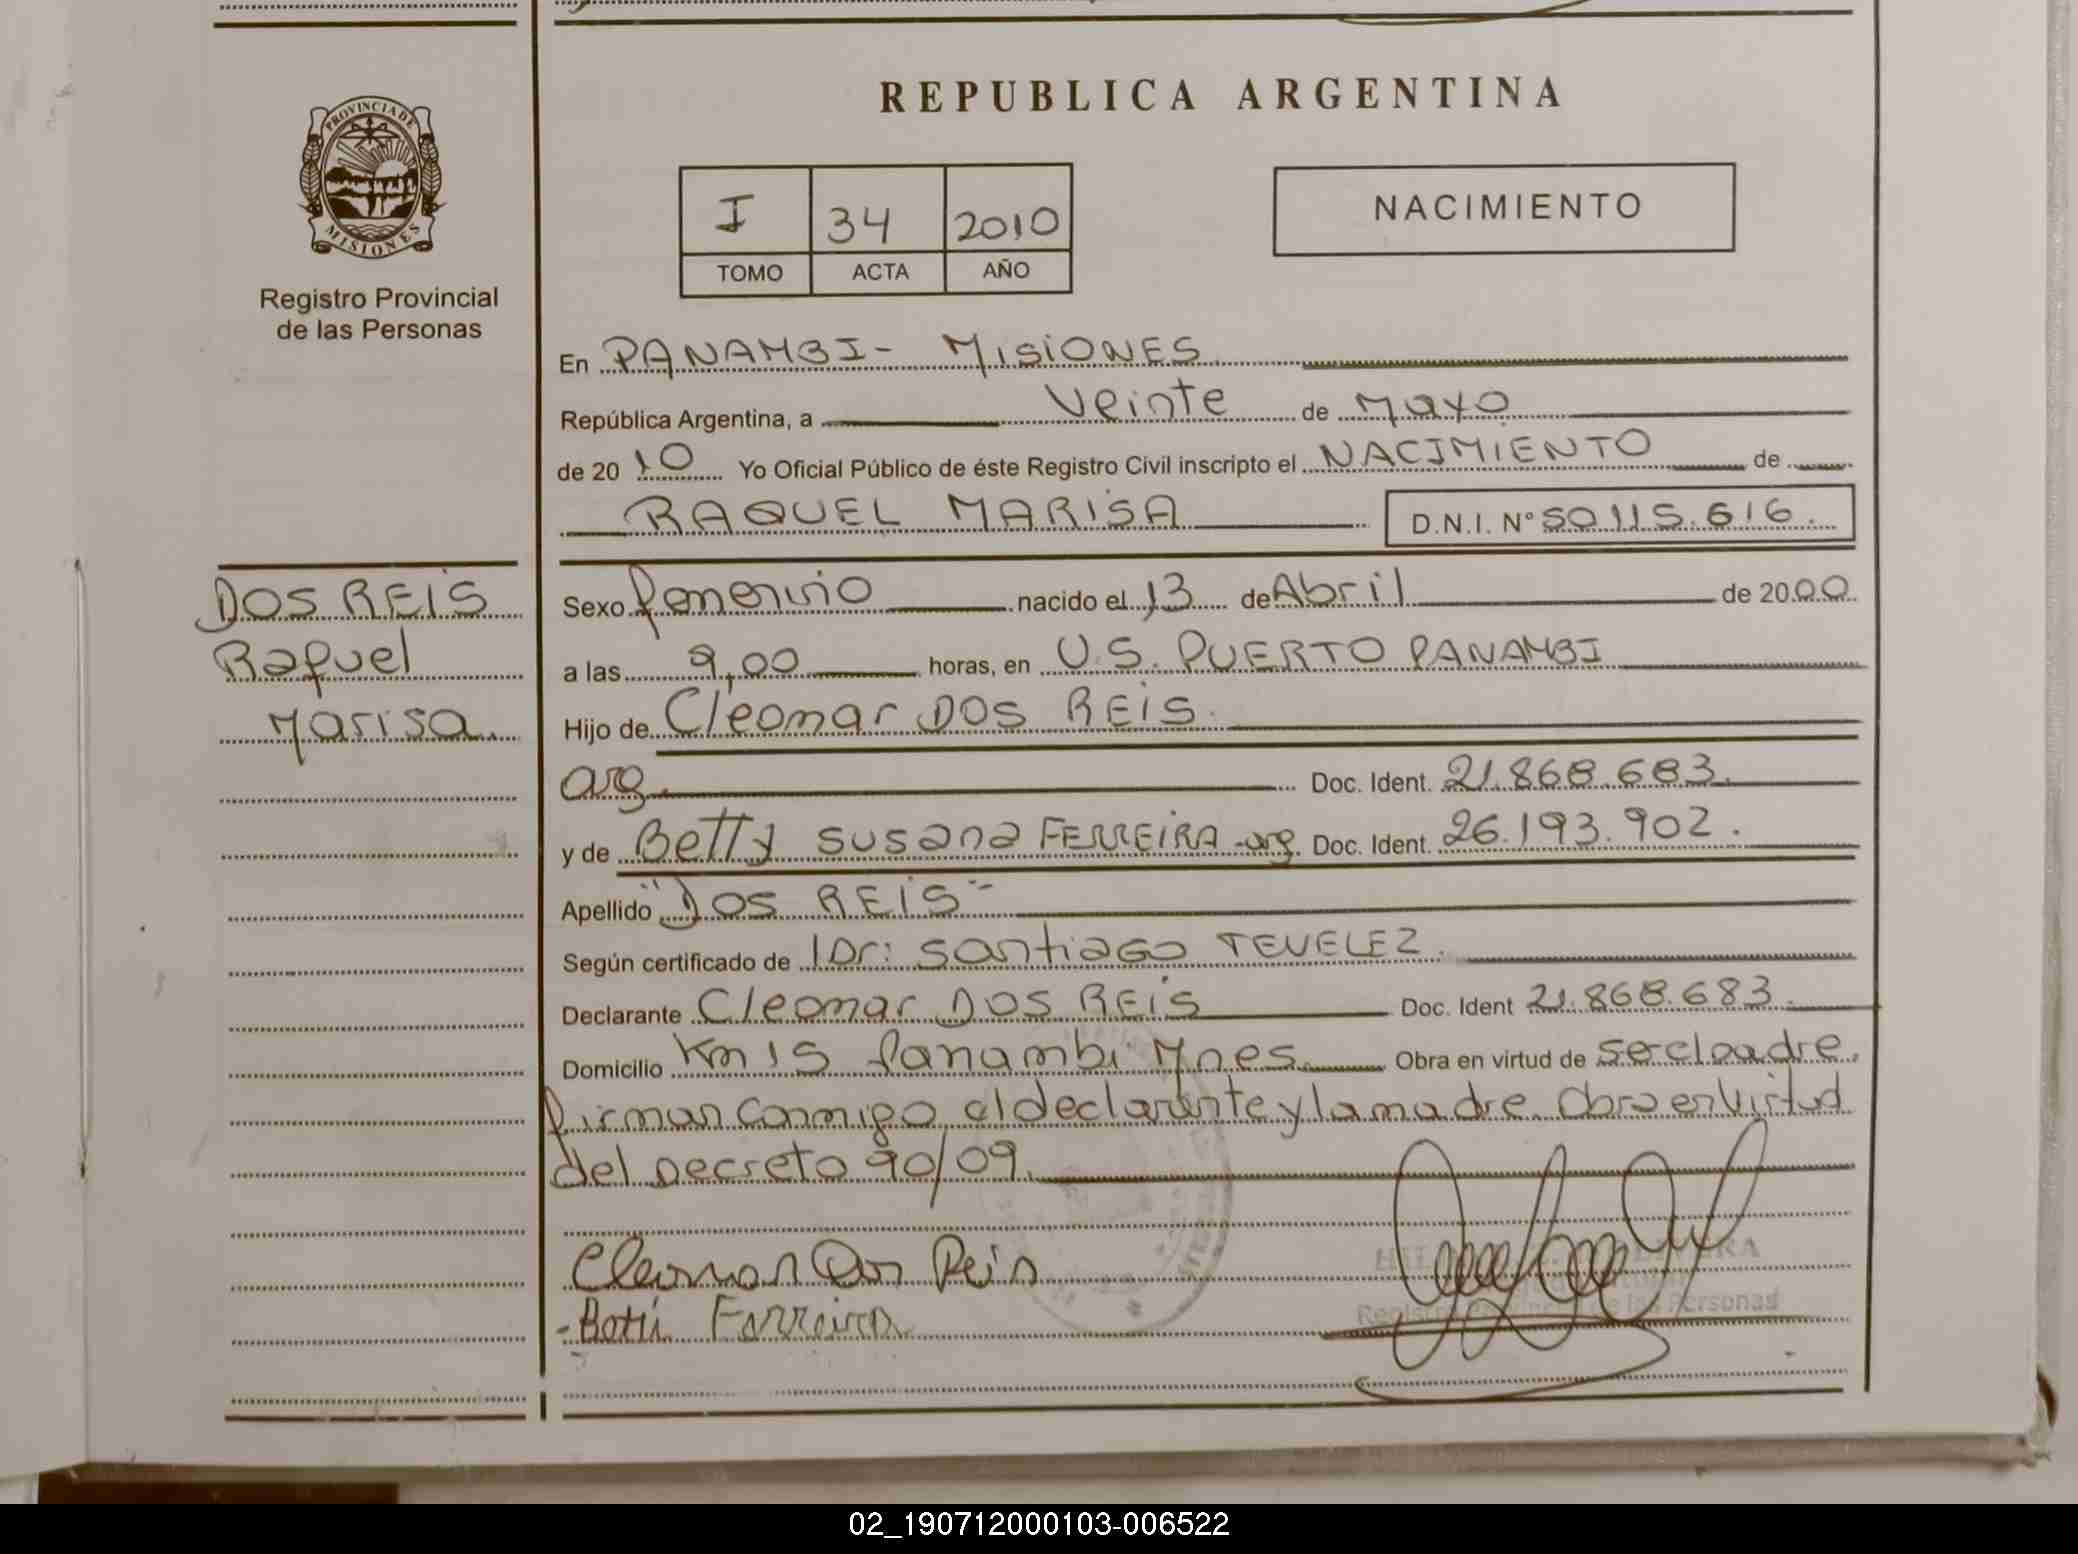 REPUBLICA ARGENTINA
PROVINCIA DE MISIONES
Registro Provincial
de las Personas
I 34 2010
TOMO ACTA AÑO
NACIMIENTO
En PANAMBI - MISIONES
República Argentina, a Veinte de Mayo
de 2010 Yo Oficial Público de éste Registro Civil inscripto el NACIMIENTO de
RAQUEL MARISA D.N.I. N° 50.115.616.
DOS REIS
Raquel
Marisa.
Sexo femenino nacido el 13 de Abril de 2000
a las 9,00 horas, en U.S. PUERTO PANAMBI
Hijo de Cleomar DOS REIS.
arg. Doc. Ident. 21.868.683.
y de Betty SUSANA FERREIRA -arg. Doc. Ident. 26.193.902.
Apellido "DOS REIS"
Según certificado de Dr: Santiago TEVELEZ.
Declarante Cleomar DOS REIS Doc. Ident 21.868.683.
Domicilio Km 15 Panambi Mnes. Obra en virtud de ser el padre,
firman conmigo el declarante y la madre. Obra en virtud
del Decreto 90/09.
Cleomar Dos Reis
- Ferreira
Registro Provincial de las Personas
02_190712000103-006522